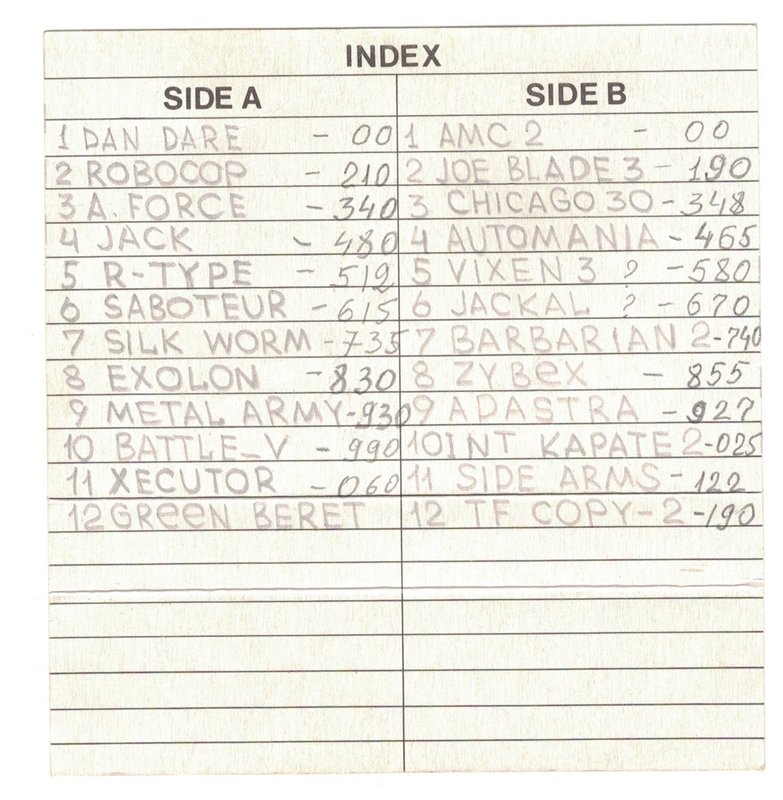 INDEX
SIDE A
1 DAN DARE - 00
2 ROBOCOP - 210
3 A. FORCE - 340
4 JACK - 480
5 R-TYPE - 512
6 SABOTEUR - 615
7 SILK WORM - 735
8 EXOLON - 830
9 METAL ARMY - 930
10 BATTLE_V - 990
11 XECUTOR - 060
12 GREEN BERET
SIDE B
1 AMC 2 - 00
2 JOE BLADE 3 - 190
3 CHICAGO 30 - 348
4 AUTOMANIA - 465
5 VIXEN 3 ? - 580
6 JACKAL ? - 670
7 BARBARIAN 2 - 740
8 ZYBEX - 855
9 ADASTRA - 927
10 INT KAPATE 2 - 025
11 SIDE ARMS - 122
12 TF COPY - 2 - 190